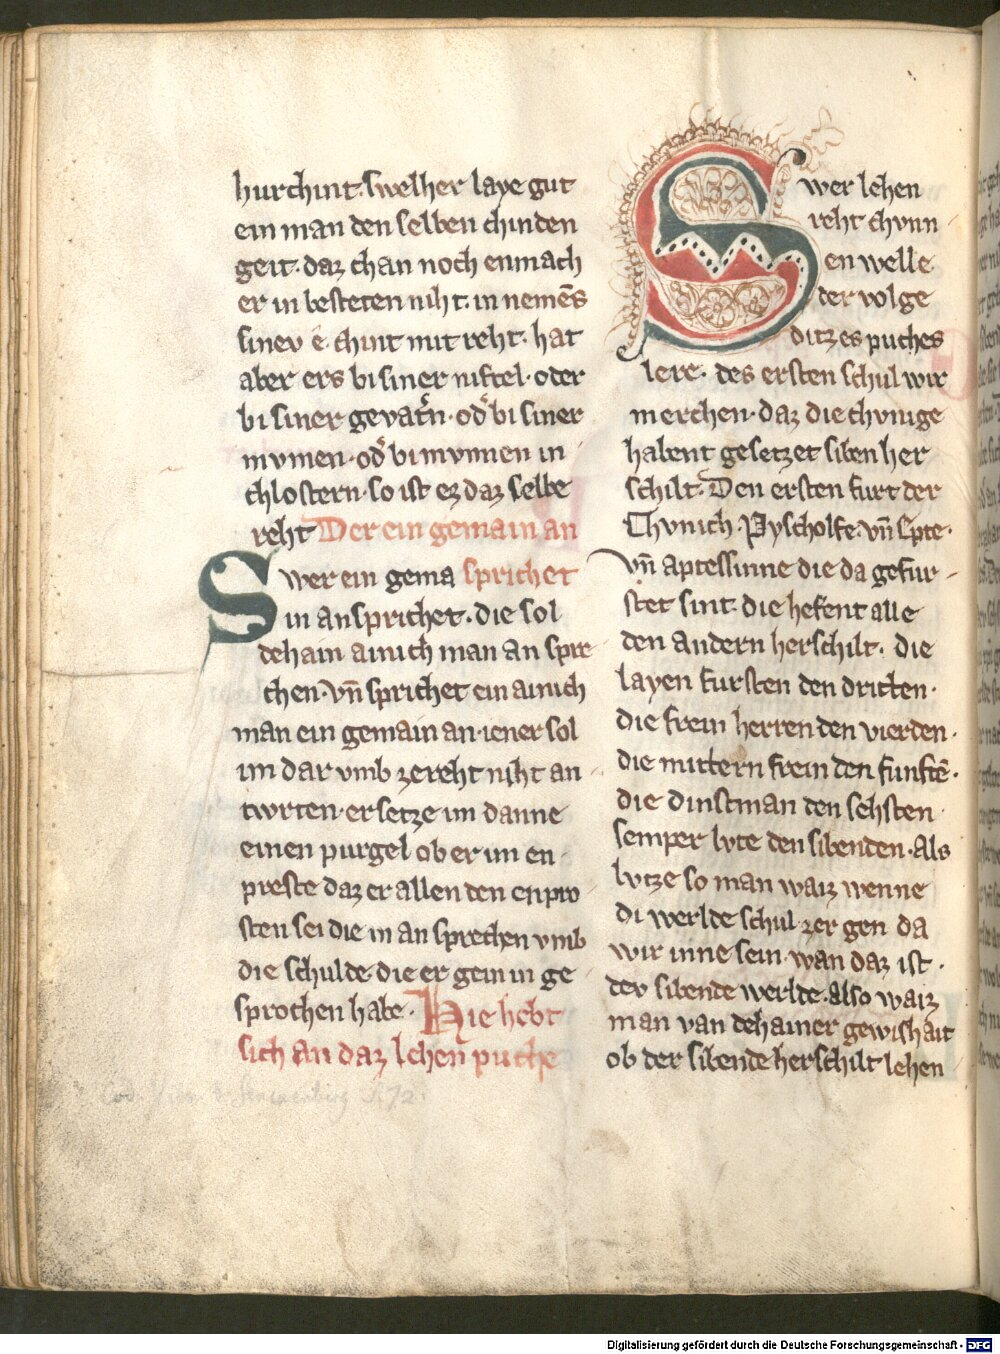 hurchint. swelher laye gut
ein man den selben chinden
geit. daz chan noch enmach
er in besteten niht. in nemēs
siner e. chint mit reht. hat
aber ers bi siner niftel. oder
bi siner gevatͤn. od͛ bi siner
mvmen. od͛ bi mvnnen in
chlostern. so ist ez daz selbe
reht Der ein gemain an
Swer ein gema sprichet
in ansprichet. die sol
dehain ainich man an spre
chen. vn̄ sprichet ein ainich
man ein gemain an. iener sol
im dar vmb zereht niht an
twrten. er setze im danne
einen purgel ob er im en
preste daz er allen den enpro
sten sei die in an sprechen vmb
die schulde. die er gein in ge
sprochen habe. Hie hebt
sich an daz lehen puche
Swer lehen
reht chvnn
en welle
der volge
ditz es puches
lere. des ersten schul wir
merchen. daz die chvnige
habent gesetzet siben her
schilt. Den ersten furt der
Chvnich. Pyscholfe. vn̄ Epte.
vn̄ aptessinne die da gefur
stet sint. die hefent alle
den andern herschilt. die
layen fursten den dritten.
die frein herren den vierden.
die mittern frein den funftē.
die dinstman den sehsten
semper lvte den sibenden. Als
lvtze so man waiz wenne
di werlde schul zer gen da
wir inne sein. wan daz ist.
der sibende werlde. also waiz
man van dehainer gewishait
ob der sibende herschilt lehen
Digitalisierung gefördert durch die Deutsche Forschungsgemeinschaft - DFG